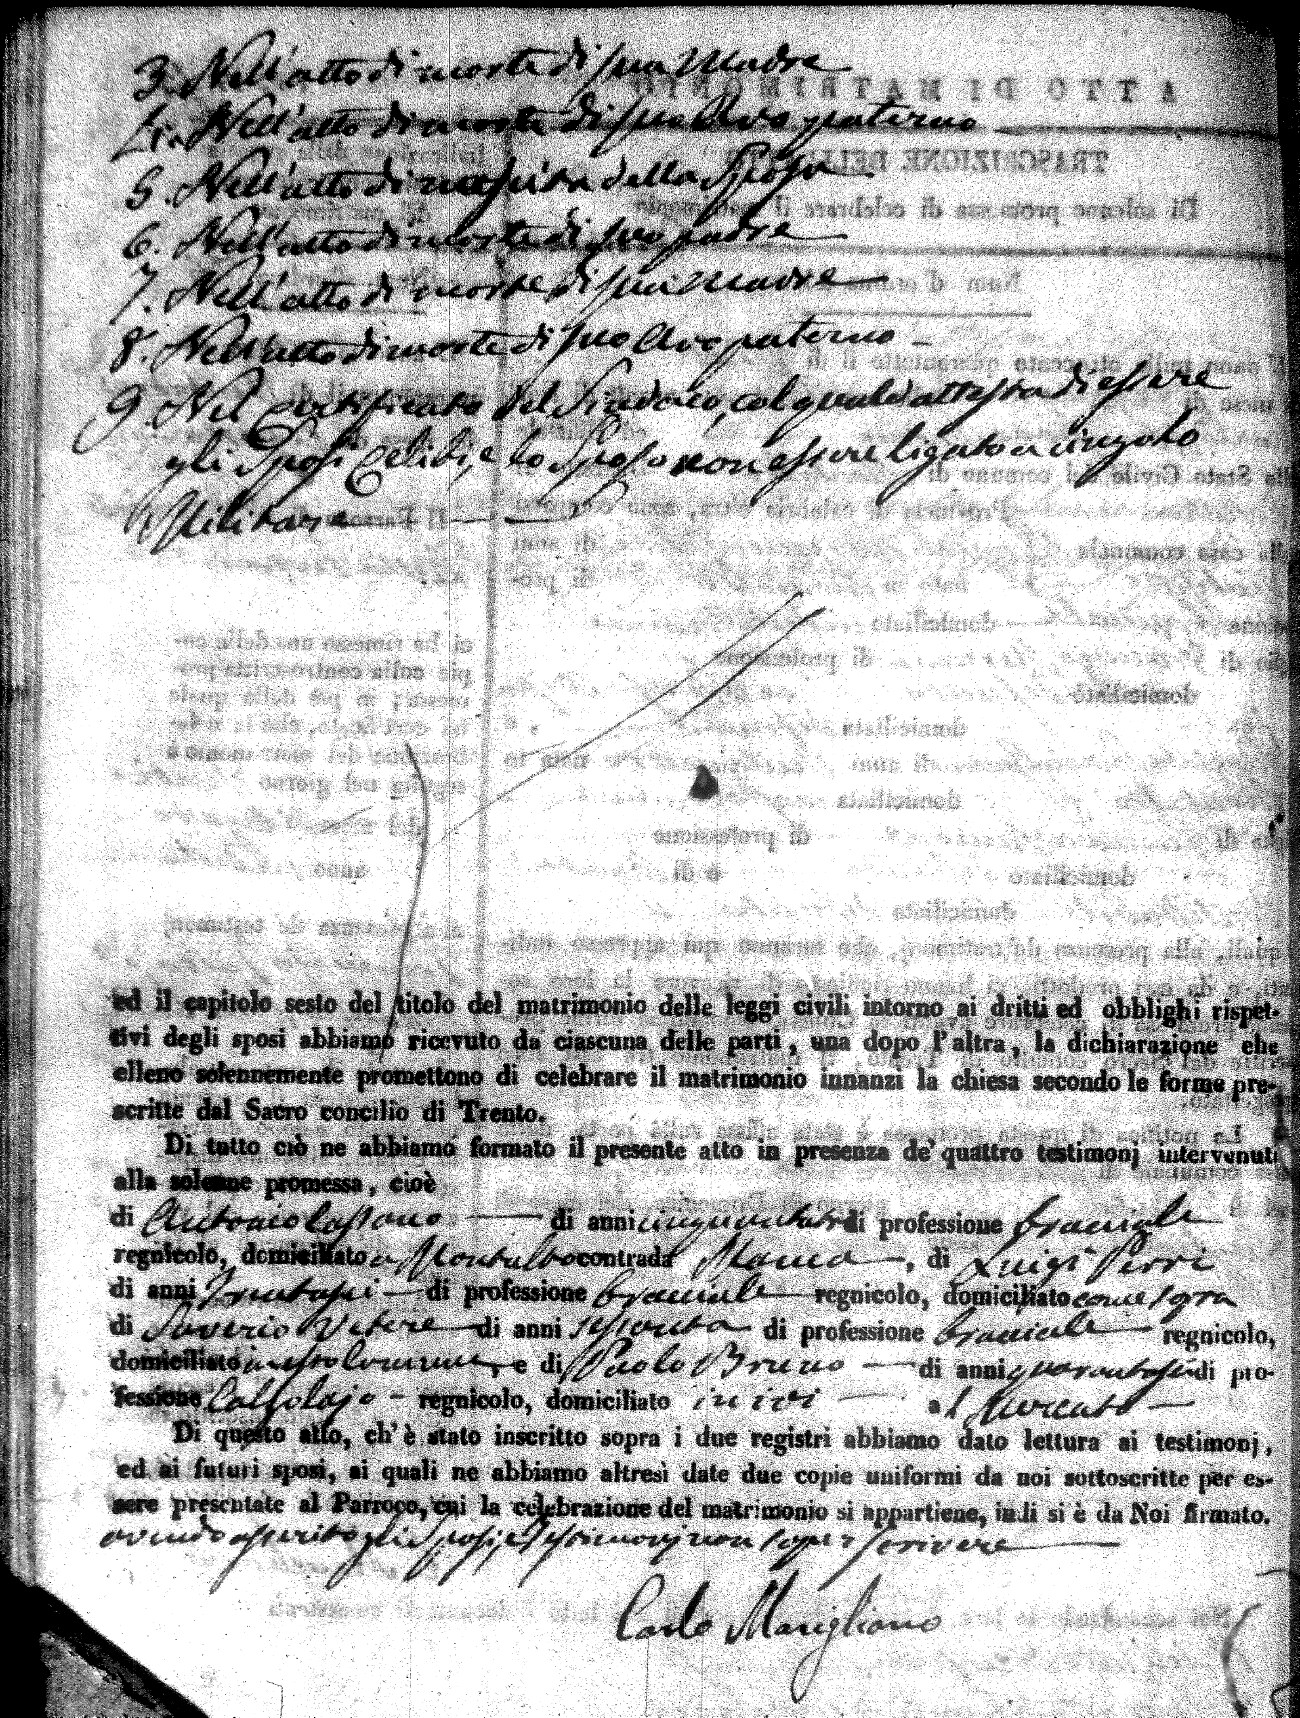 3. Nell'atto di morte di sua Madre
4. Nell'atto di morte di suo Avo paterno
5. Nell'atto di nascita della Sposa
6. Nell'atto di morte di suo padre
7. Nell'atto di morte di sua madre
8. Nell'atto di morte di suo Avo paterno
9. Nel certificato del Sindaco, col quale attesta di essere
gli Sposi Celibi, e lo Sposo non essere ligato a cingolo
Militare
ed il capitolo sesto del titolo del matrimonio delle leggi civili intorno ai dritti ed obblighi rispet-
tivi degli sposi abbiamo ricevuto da ciascuna delle parti, una dopo l'altra, la dichiarazione che
elleno solennemente promettono di celebrare il matrimonio innanzi la chiesa secondo le forme pre-
scritte dal Sacro concilio di Trento.
Di tutto ciò ne abbiamo formato il presente atto in presenza de' quattro testimonj intervenuti
alla solenne promessa, cioè
di Antonio Cassano di anni cinquantatre di professione bracciale
regnicolo, domiciliato a Montalto contrada , di Luigi Perri
di anni Trentasei di professione bracciale regnicolo, domiciliato come sopra
di Saverio Vetere di anni sessanta di professione bracciale regnicolo,
domiciliato in esso Comune, e di Paolo Bruno di anni quarantasei di pro-
fessione Calsolajo regnicolo, domiciliato in ivi al Mercato
Di questo atto, ch'è stato inscritto sopra i due registri abbiamo dato lettura ai testimonj,
ed ai futuri sposi, ai quali ne abbiamo altresì date due copie uniformi da noi sottoscritte per es-
sere presentate al Parroco, cui la celebrazione del matrimonio si appartiene, indi si è da Noi firmato.
avendo asserito gli Sposi, e Testimonj non saper scrivere
Carlo Marigliano